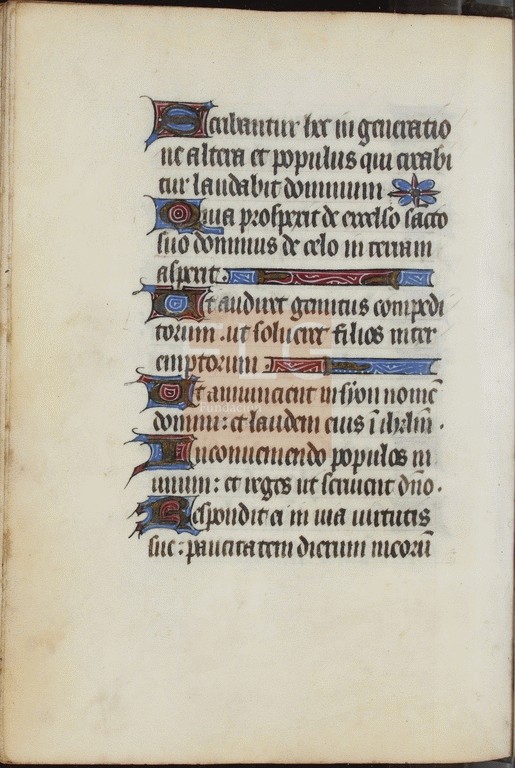 Scribantur hec in generatio
ne altera et populus qui creabi
tur laudabit dominum
Quia prospexit de excelso sacto
suo dominus de celo in terram
aspexit.
Ut audiret gemitus compedi
torum .ut solueret filios inter
emptorum .
Ut annuncient in syon nomē
domini: et laudem eius ī ihrlm̄ .
In conueniendo populos in
unum: et reges ut seruient dn̄o .
Respondit ei in uia uirtutis
sue: paucitatem dierum meorū
FLG
Fundación